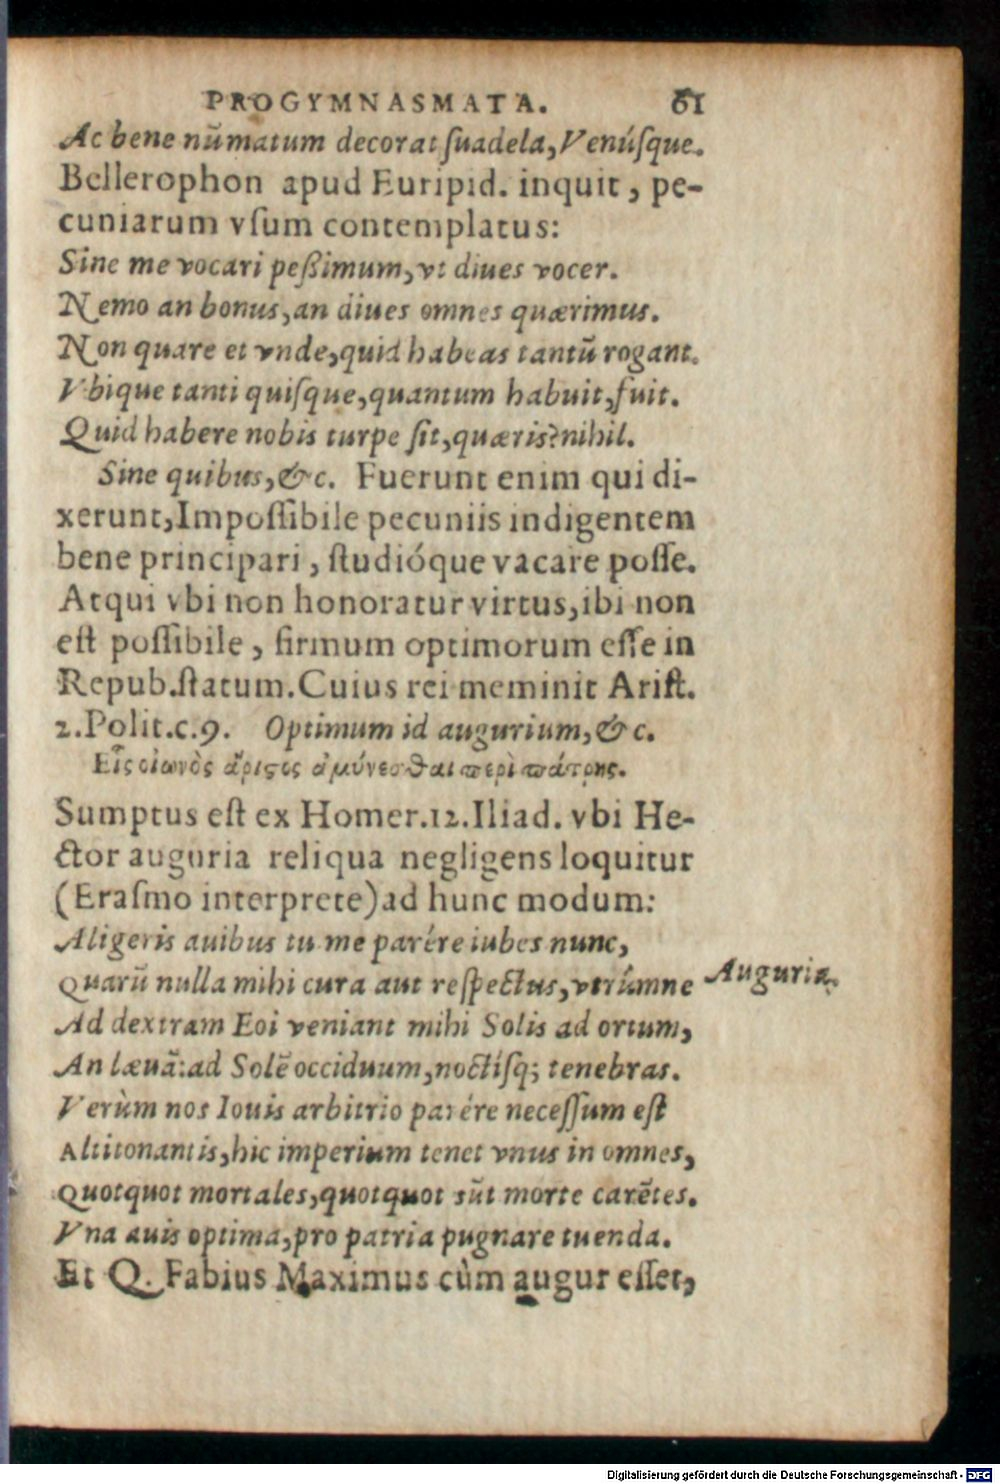 PROGYMNASMATA. 61
Ac bene nũmatum decorat ſuadela, Venúſque.
Bellerophon apud Euripid. inquit, pe-
cuniarum vſum contemplatus:
Sine me vocari peßimum, vt diues vocer.
Nemo an bonus, an diues omnes quærimus.
Non quare et vnde, quid habeas tantũ rogant.
Vbique tanti quiſque, quantum habuit, fuit.
Quid habere nobis turpe ſit, quæris? nihil.
Sine quibus, &c. Fuerunt enim qui di-
xerunt, Impoſſibile pecuniis indigentem
bene principari, ſtudióque vacare poſſe.
Atqui vbi non honoratur virtus, ibi non
eſt poſſibile, firmum optimorum eſſe in
Repub. ſtatum. Cuius rei meminit Ariſt.
2. Polit. c. 9. Optimum id augurium, &c.
Εἷς οἰωνὸς ἄριϛος ἀμύνεσθαι περὶ πάτρης.
Sumptus eſt ex Homer. 12. Iliad. vbi He-
ctor auguria reliqua negligens loquitur
(Eraſmo interprete) ad hunc modum:
Aligeris auibus tu me parére iubes nunc,
Quarũ nulla mihi cura aut reſpectus, vtrúmne
Auguria.
Ad dextram Eoi veniant mihi Solis ad ortum,
An læuã: ad Solẽ occiduum, noctíſq; tenebras.
Verùm nos Iouis arbitrio parére neceſſum eſt
Altitonantis, hic imperium tenet vnus in omnes,
Quotquot mortales, quotquot sũt morte carẽtes.
Vna auis optima, pro patria pugnare tuenda.
Et Q. Fabius Maximus cùm augur eſſet,
Digitalisierung gefördert durch die Deutsche Forschungsgemeinschaft - DFG